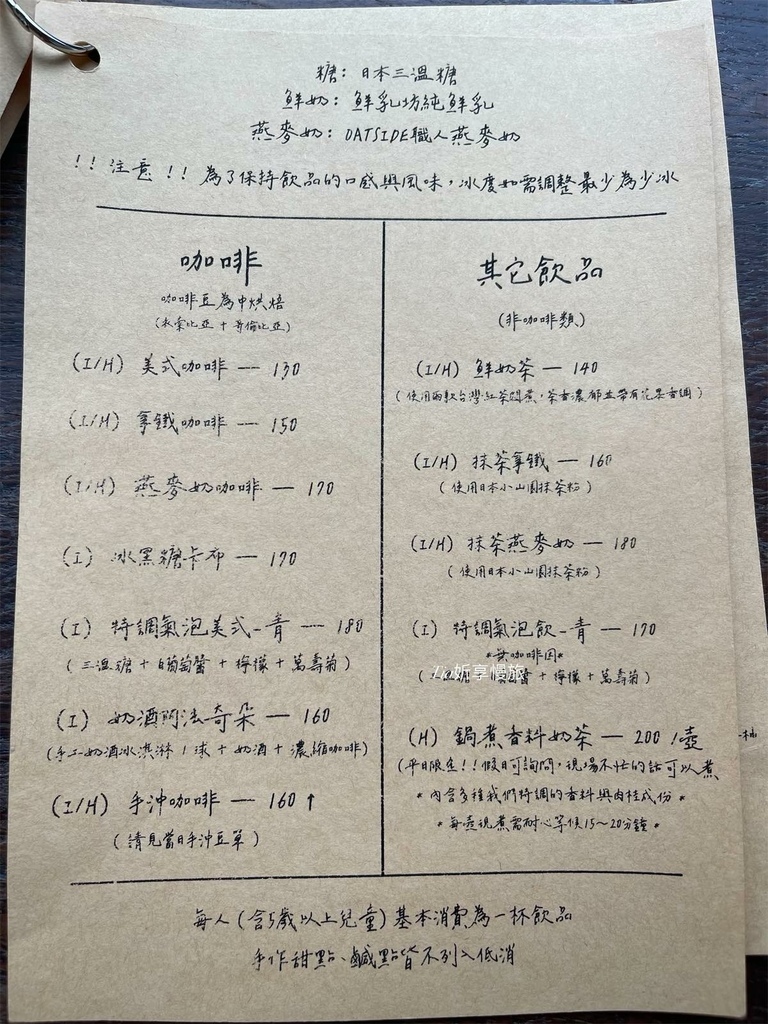 糖：日本三溫糖
鮮奶：鮮乳坊純鮮乳
燕麥奶：OATSIDE職人燕麥奶
!! 注意 !! 為了保持飲品的口感與風味，冰度如需調整最少為少冰
咖啡
咖啡豆為中烘焙
(衣索比亞 + 哥倫比亞)
(I/H) 美式咖啡 — 130
(I/H) 拿鐵咖啡 — 150
(I/H) 燕麥奶咖啡 — 170
(I) 冰黑糖卡布 — 170
(I) 特調氣泡美式-青 — 180
(三溫糖 + 白葡萄醬 + 檸檬 + 萬壽菊)
(I) 奶酒阿法奇朵 — 160
(手工奶酒冰淇淋1球 + 奶酒 + 濃縮咖啡)
(I/H) 手沖咖啡 — 160↑
(請見當日手沖豆單)
其它飲品
(非咖啡類)
(I/H) 鮮奶茶 — 140
(使用兩款台灣紅茶悶煮，茶香濃郁並帶有花果香調)
(I/H) 抹茶拿鐵 — 160
(使用日本小山園抹茶粉)
(I/H) 抹茶燕麥奶 — 180
(使用日本小山園抹茶粉)
(I) 特調氣泡飲-青 — 170
*無咖啡因*
糖 + 葡萄醬 + 檸檬 + 萬壽菊)
(H) 鍋煮香料奶茶 — 200 /壺
(平日限定!!假日可詢問，現場不忙的話可以煮
*內含多種我們特調的香料與肉桂成份*
*每壺現煮需耐心等候15~20分鐘*
每人(含5歲以上兒童)基本消費為一杯飲品
手作甜點、鹹點皆不列入低消
妡享慢旅